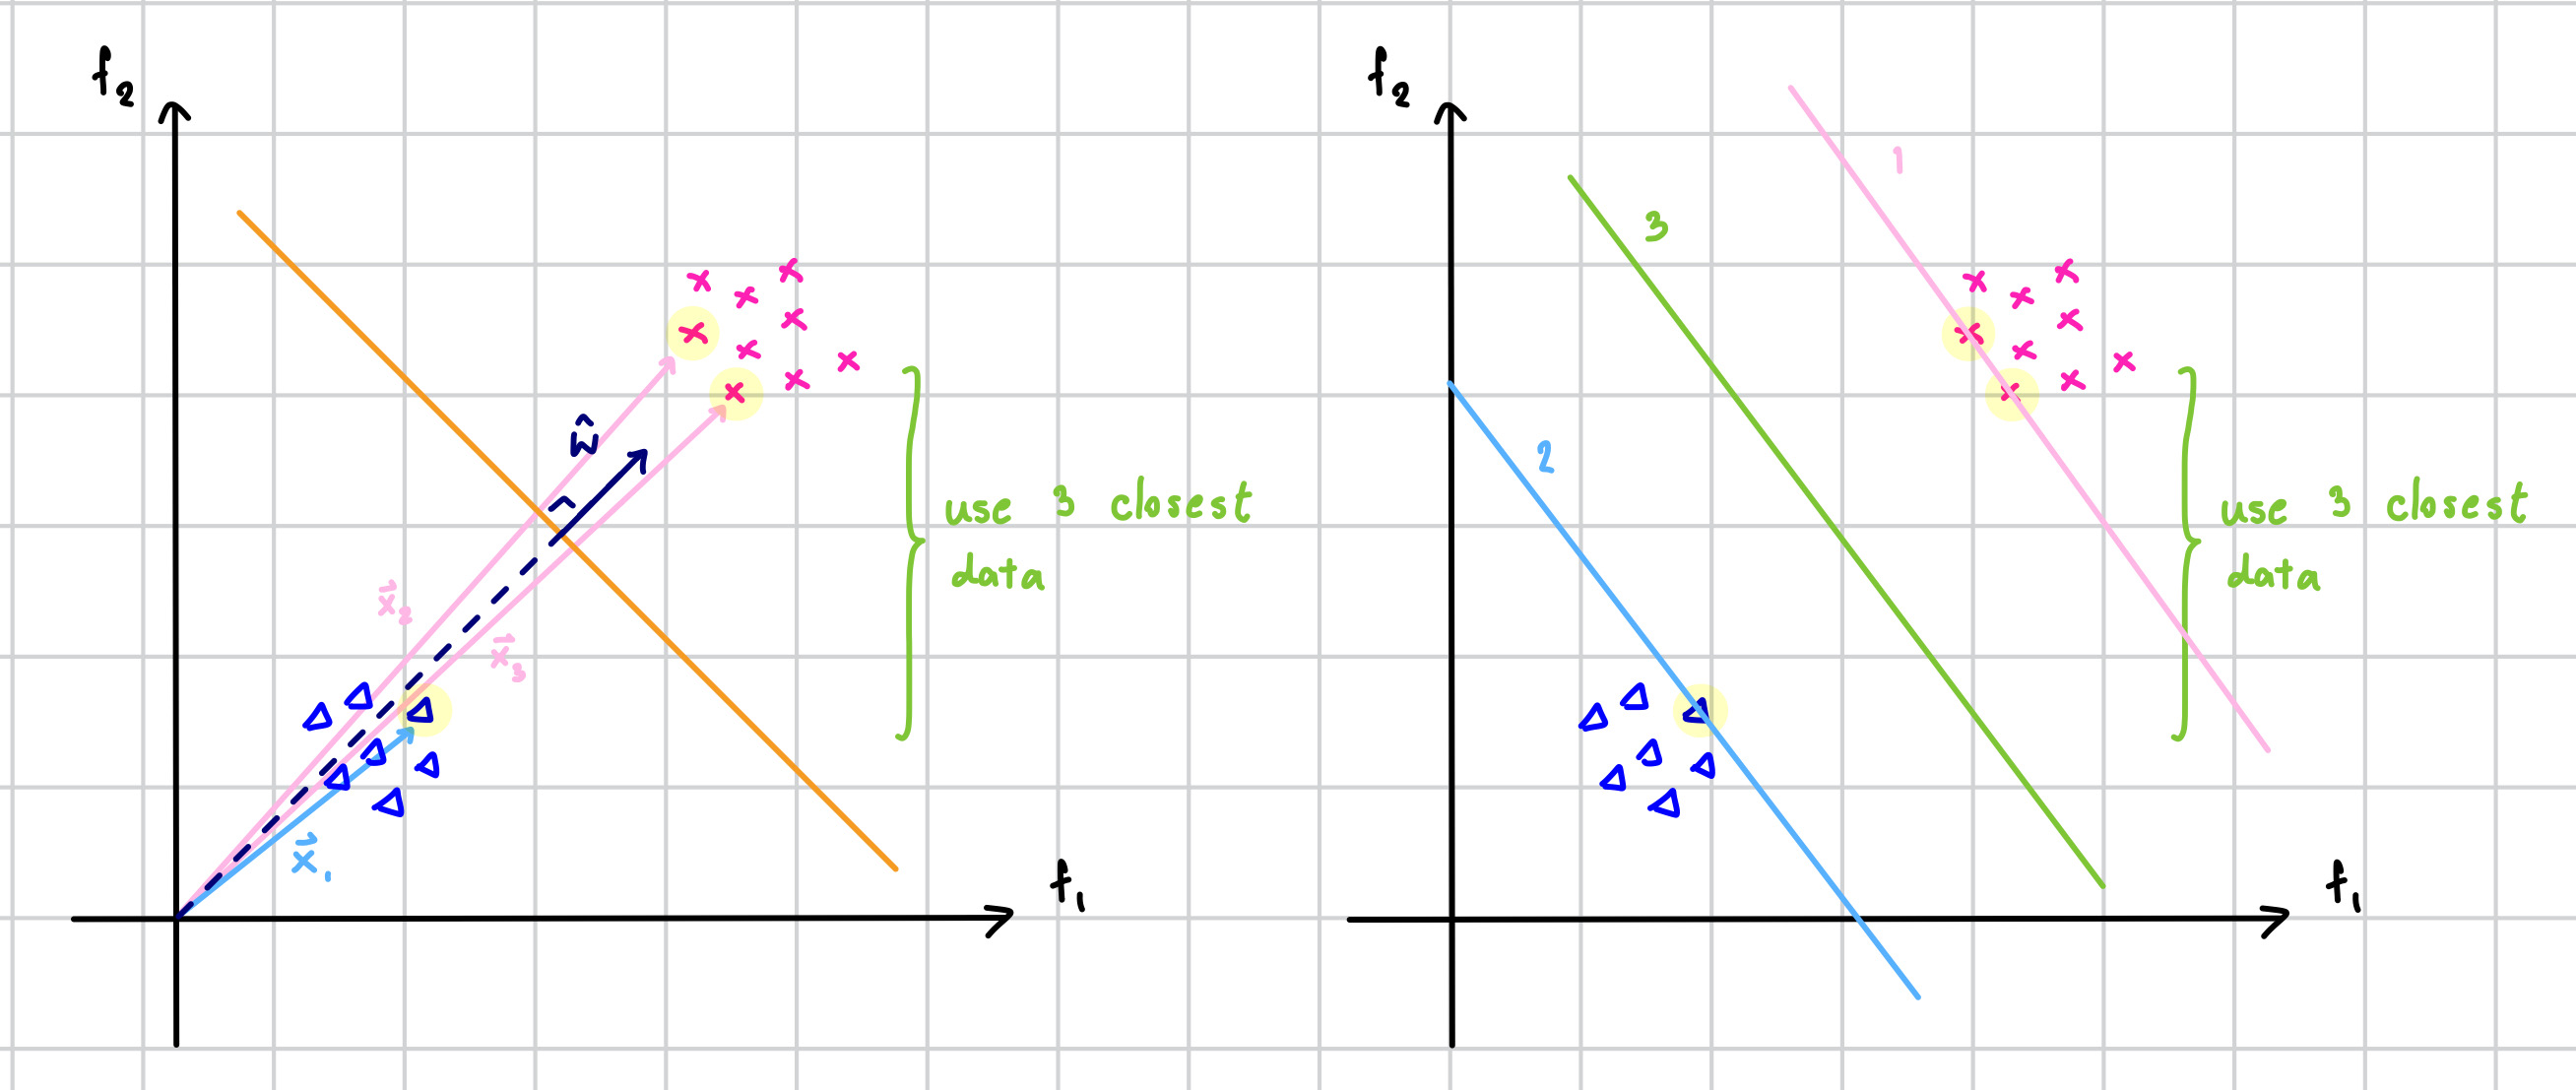 f₂
ŵ
x⃗₂
x⃗₃
x⃗₁
use 3 closest
data
f₁
f₂
1
3
2
use 3 closest
data
f₁